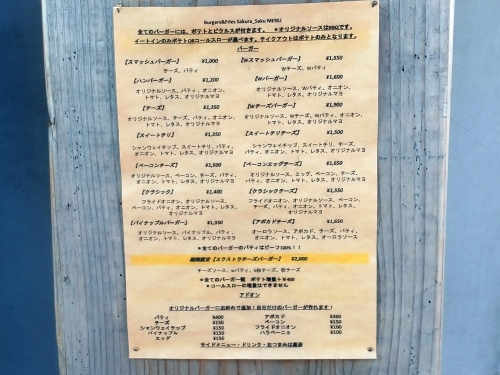 Burgers&Fries Sakura_Saku MENU
全てのバーガーには、ポテトとピクルスが付きます。 *オリジナルソースはBBQです。
イートインのみポテトORコールスローが選べます。テイクアウトはポテトのみとなります。
バーガー
【スマッシュバーガー】 ¥1,000
チーズ、パティ
【Wスマッシュバーガー】 ¥1,350
Wチーズ、Wパティ
【ハンバーガー】 ¥1,200
オリジナルソース、パティ、オニオン、トマト、レタス、オリジナルマヨ
【Wバーガー】 ¥1,600
オリジナルソース、Wパティ、オニオン、トマト、レタス、オリジナルマヨ
【チーズ】 ¥1,350
オリジナルソース、チーズ、パティ、オニオン、トマト、レタス、オリジナルマヨ
【Wチーズバーガー】 ¥1,900
オリジナルソース、Wチーズ、Wパティ、オニオン、トマト、レタス、オリジナルマヨ
【スイートチリ】 ¥1,350
シャンウェイサップ、スイートチリ、パティ、オニオン、トマト、レタス、オリジナルマヨ
【スイートチリチーズ】 ¥1,500
シャンウェイサップ、スイートチリ、チーズ、パティ、オニオン、トマト、レタス、オリジナルマヨ
【ベーコンチーズ】 ¥1,500
オリジナルソース、ベーコン、チーズ、パティ、オニオン、トマト、レタス、オリジナルマヨ
【ベーコンエッグチーズ】 ¥1,650
オリジナルソース、エッグ、ベーコン、チーズ、パティ、オニオン、トマト、レタス、オリジナルマヨ
【クラシック】 ¥1,400
フライドオニオン、オリジナルソース、ベーコン、パティ、オニオン、トマト、レタス、オリジナルマヨ
【クラシックチーズ】 ¥1,550
フライドオニオン、オリジナルソース、ベーコン、チーズ、パティ、オニオン、トマト、レタス、オリジナルマヨ
【パイナップルバーガー】 ¥1,350
オリジナルソース、パイナップル、パティ、オニオン、トマト、レタス、オリジナルマヨ
【アボカドチーズ】 ¥1,650
オーロラソース、アボカド、チーズ、パティ、オニオン、トマト、レタス、オーロラソース
*全てのバーガーのパティはビーフ100%！！
期間限定【エクストラチーズバーガー】 ¥2,000
チーズソース、Wパティ、6枚チーズ、粉チーズ
*全てのバーガー類 ポテト増量+¥400
*コールスローの増量はできません
アドオン
オリジナルバーガーにお好みで追加！自分だけのバーガーが作れます！
パティ ¥400 アボカド ¥300
チーズ ¥150 ベーコン ¥150
シャンウェイサップ ¥150 フライドオニオン ¥100
パイナップル ¥150 ハラペーニョ ¥100
エッグ ¥150
サイドメニュー・ドリンク・おつまみは裏面